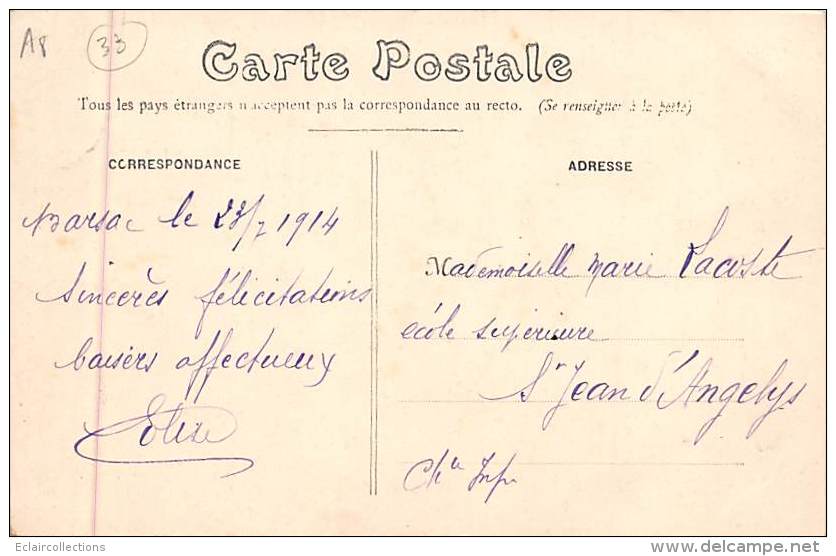 A8 33
Carte Postale
Tous les pays étrangers n'acceptent pas la correspondance au recto. (Se renseigner à la poste)
CORRESPONDANCE
Barsac le 23/7 1914
Sincerès félicitations
baisers affectueux
Elise
ADRESSE
Mademoiselle Marie Lacoste
école supérieure
St Jean d'Angelys
Chte Infre
Eclaircollections
www.delcampe.net